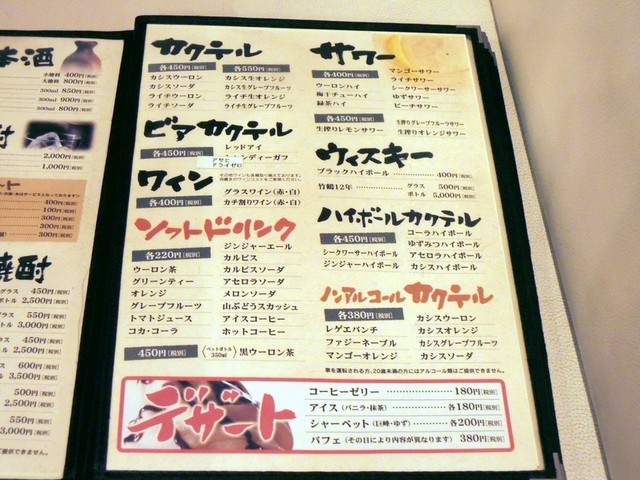 本酒
小徳利 400円[税別]
大徳利 800円[税別]
300ml 850円[税別]
300ml 900円[税別]
300ml 800円[税別]
酎
2,000円[税別]
1,000円[税別]
ート
400円[税別]
100円[税別]
300円[税別]
300円[税別]
300円[税別]
焼酎
グラス 450円[税別]
ボトル 2,500円[税別]
グラス 550円[税別]
ボトル 3,000円[税別]
グラス 450円[税別]
ボトル 2,500円[税別]
グラス 600円[税別]
ボトル 3,500円[税別]
500円[税別]
2,500円[税別]
550円[税別]
3,000円[税別]
ご提供できません。
カクテル
各450円[税別]
カシスウーロン
カシスソーダ
ライチウーロン
ライチソーダ
各550円[税別]
カシス生オレンジ
カシス生グレープフルーツ
ライチ生オレンジ
ライチ生グレープフルーツ
ビアカクテル
各450円[税別]
レッドアイ
ンディーガフ
アサヒ
ドライゼロ
ワイン
その他ワインも各種取り揃えております。
別冊のワインリストをご覧ください。
各400円[税別]
グラスワイン(赤・白)
カチ割りワイン(赤・白)
ソフトドリンク
各220円[税別]
ウーロン茶
グリーンティー
オレンジ
グレープフルーツ
トマトジュース
コカ・コーラ
ジンジャーエール
カルピス
カルピスソーダ
アセロラソーダ
メロンソーダ
山ぶどうスカッシュ
アイスコーヒー
ホットコーヒー
450円[税別]
〈ペットボトル 350ml〉黒ウーロン茶
サワー
各400円[税別]
ウーロンハイ
梅干チューハイ
緑茶ハイ
マンゴーサワー
ライチサワー
シークワーサーサワー
ゆずサワー
ピーチサワー
各450円[税別]
生搾りレモンサワー
生搾りグレープフルーツサワー
生搾りオレンジサワー
ウィスキー
ブラックハイボール 400円[税別]
竹鶴12年 グラス 500円[税別]
ボトル 5,000円[税別]
ハイボールカクテル
各450円[税別]
シークワーサーハイボール
ジンジャーハイボール
コーラハイボール
ゆずみつハイボール
アセロラハイボール
カシスハイボール
ノンアルコールカクテル
各380円[税別]
レゲエパンチ
ファジーネーブル
マンゴーオレンジ
カシスウーロン
カシスオレンジ
カシスグレープフルーツ
カシスソーダ
車を運転される方、20歳未満の方にはアルコール類はご提供できません。
デザート
コーヒーゼリー 180円[税別]
アイス(バニラ・抹茶) 各180円[税別]
シャーベット(巨峰・ゆず) 各200円[税別]
パフェ(その日により内容が異なります) 380円[税別]